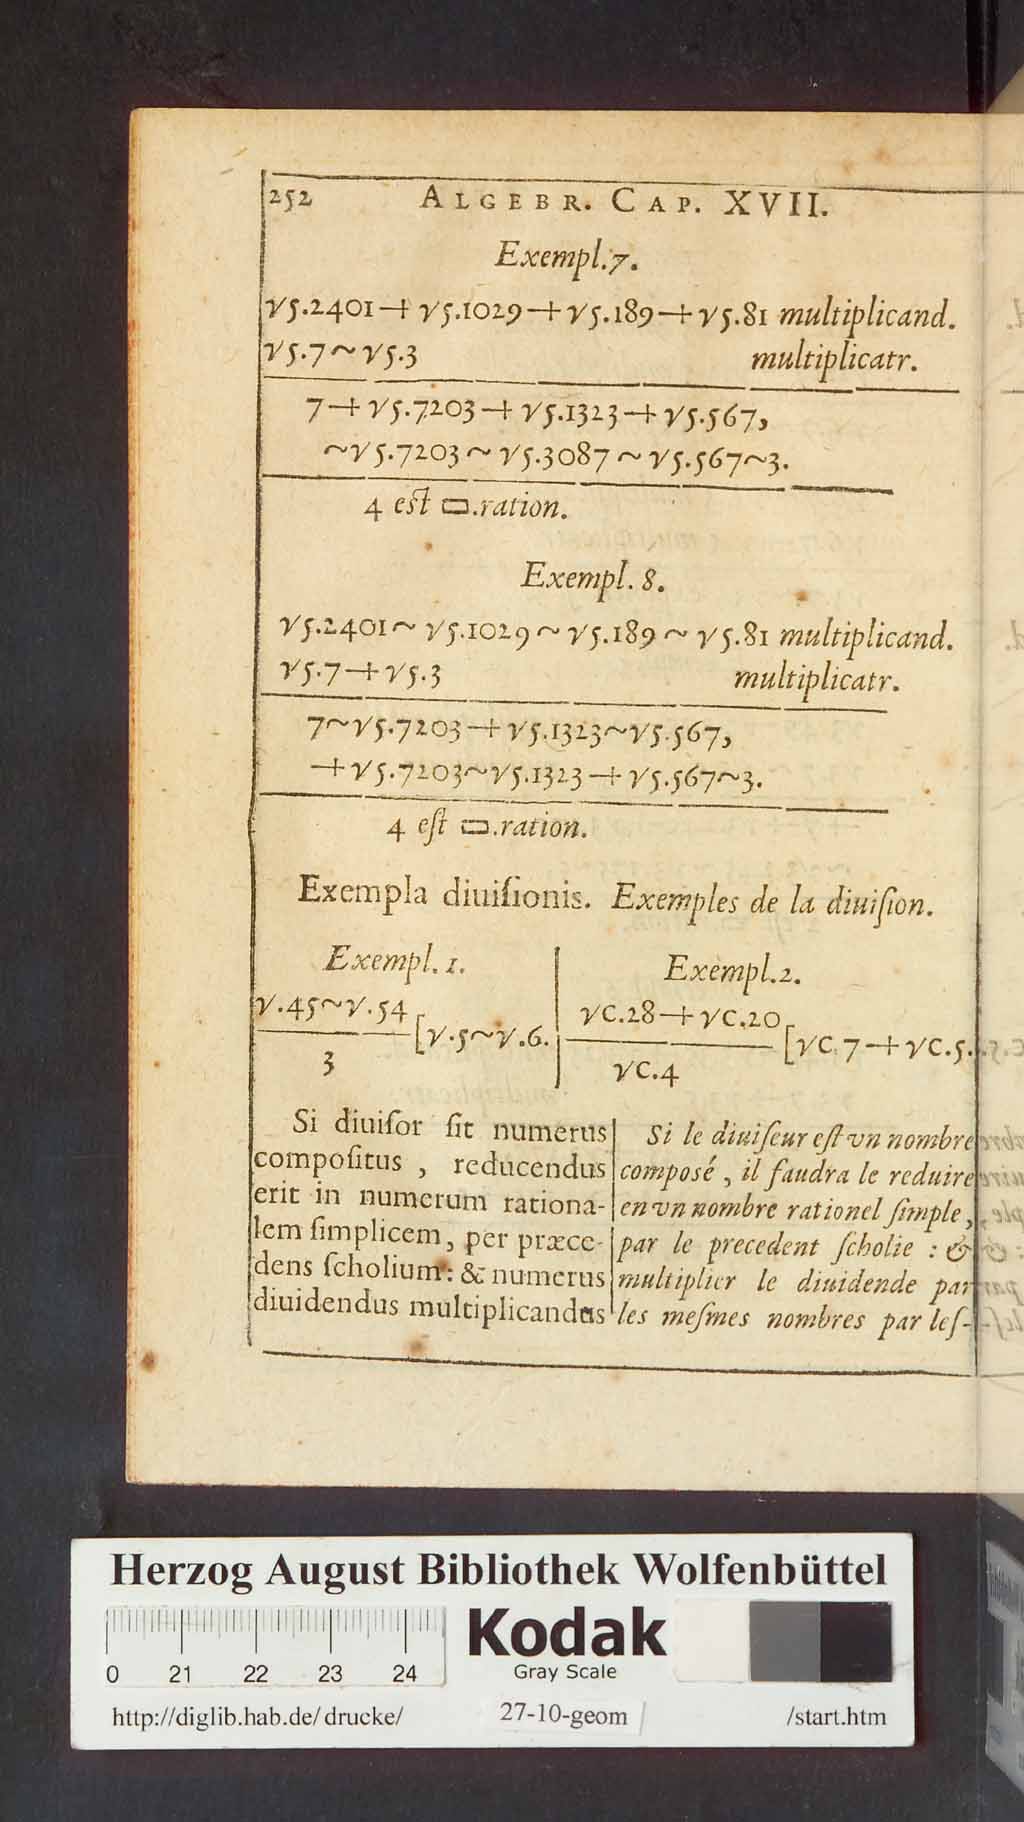 252 ALGEBR. CAP. XVII.
Exempl.7.
√5.2401+√5.1029+√5.189+√5.81 multiplicand.
√5.7~√5.3 multiplicatr.
7+√5.7203+√5.1323+√5.567,
~√5.7203~√5.3087~√5.567~3.
4 est ▭.ration.
Exempl. 8.
√5.2401~√5.1029~√5.189~√5.81 multiplicand.
√5.7+√5.3 multiplicatr.
7~√5.7203+√5.1323~√5.567,
+√5.7203~√5.1323+√5.567~3.
4 eſt ▭.ration.
Exempla diuiſionis. Exemples de la diuiſion.
Exempl. 1.
√.45~√.54
3
[√.5~√.6.
Exempl.2.
√C.28+√C.20
√C.4
[√C.7+√C.5.
Si diuiſor ſit numerus
compoſitus , reducendus
erit in numerum rationa-
lem ſimplicem, per præce-
dens ſcholium: & numerus
diuidendus multiplicandus
Si le diuiſeur eſt vn nombre
composé , il faudra le reduire
en vn nombre rationel ſimple,
par le precedent ſcholie : &
multiplier le diuidende par
les meſmes nombres par leſ-
Herzog August Bibliothek Wolfenbüttel
Kodak
Gray Scale
0 21 22 23 24
http://diglib.hab.de/drucke/ 27-10-geom /start.htm